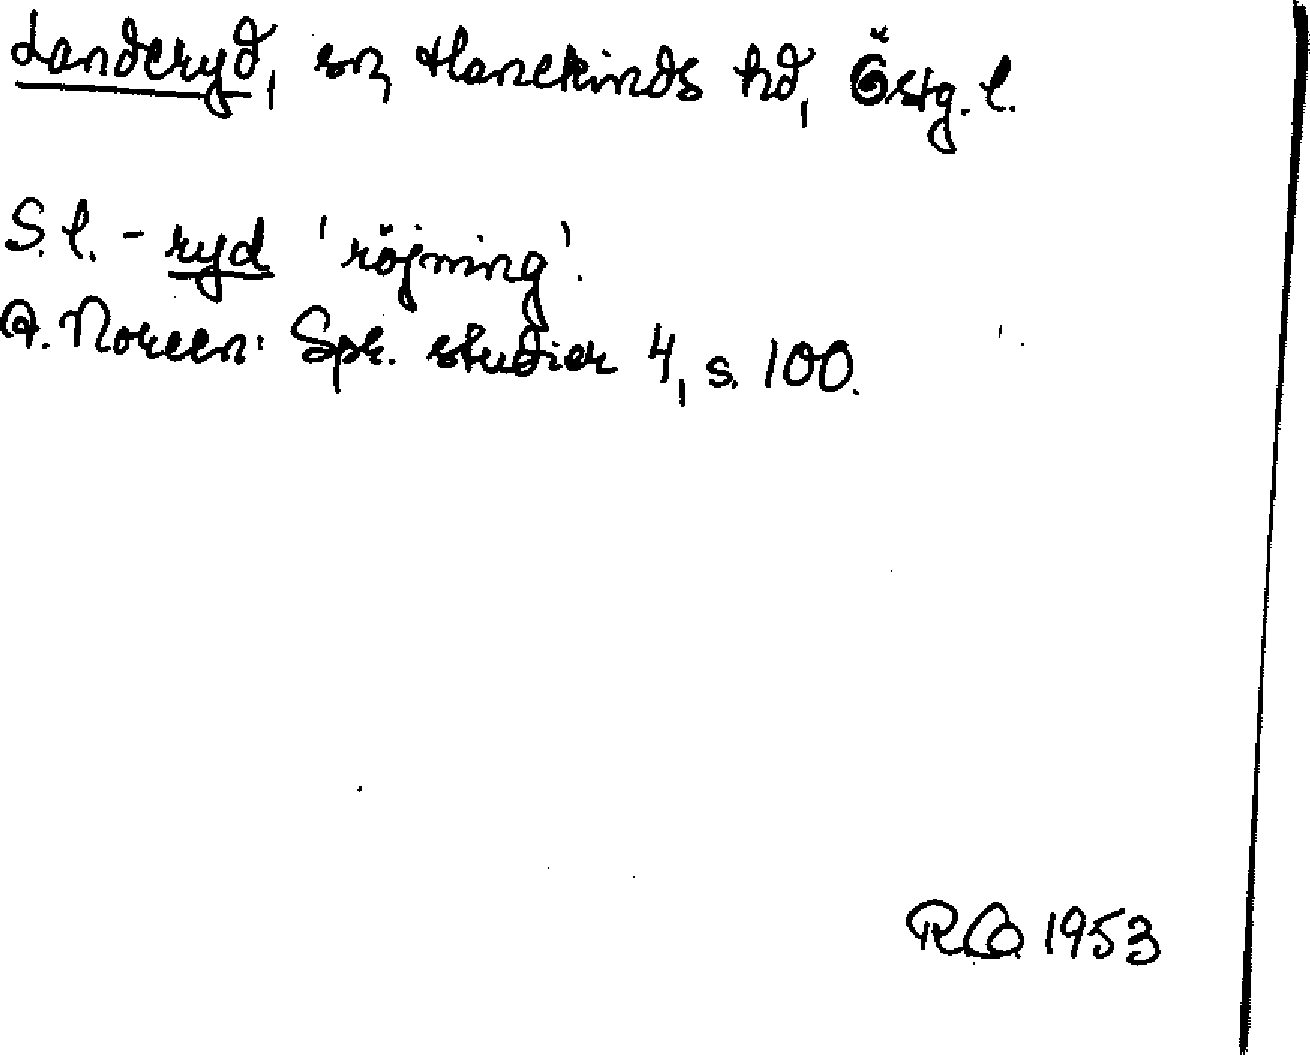 Landeryd, sn, Hanekinds hd, Östg. l.
S.l. - ryd 'röjning'.
A. Noreen: Spr. studier 4, s. 100.
1953